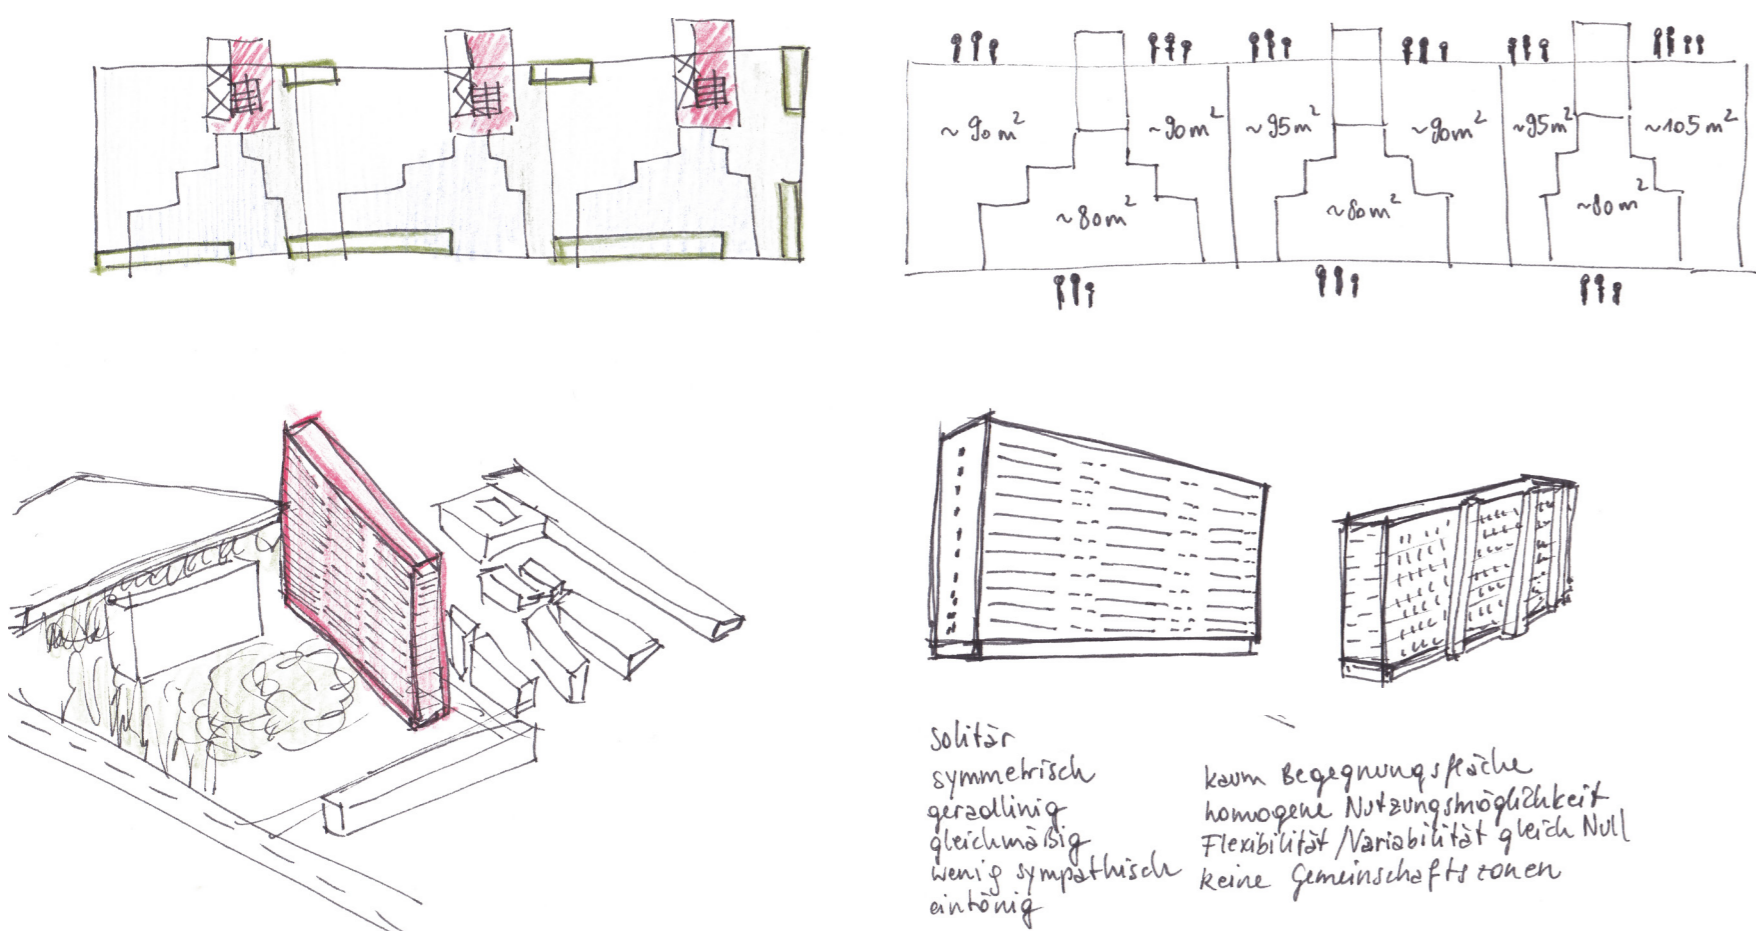 ~90m²
~90m²
~95m²
~90m²
~95m²
~105m²
~80m²
~80m²
~80m²
solitär
symmetrisch
geradlinig
gleichmäßig
wenig sympathisch
eintönig
kaum Begegnungsfläche
homogene Nutzungsmöglichkeit
Flexibilität/Variabilität gleich Null
keine Gemeinschaftszonen